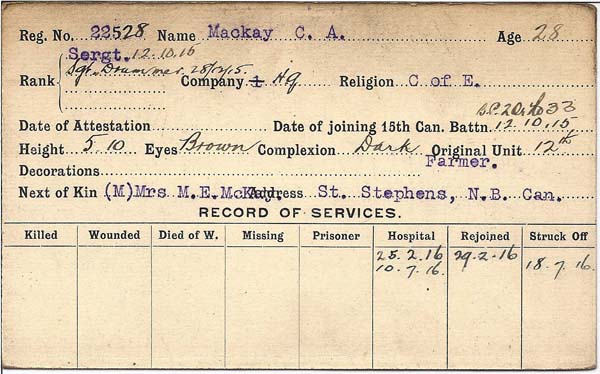 Reg. No. 22528 Name Mackay C. A. Age 28
Sergt. 12.10.15
Rank Sgt. Drummer. 28/12/15. Company 1 HQ Religion C of E.
33
Date of Attestation Date of joining 15th Can. Battn. 12.10.15
Height 5 10 Eyes Brown Complexion Dark Original Unit 12th
Decorations Farmer.
Next of Kin (M)Mrs M.E.McKay. Address St. Stephens, N.B. Can.
RECORD OF SERVICES.
Killed Wounded Died of W. Missing Prisoner Hospital Rejoined Struck Off
25.2.16 29.2.16
10.7.16. 18.7.16